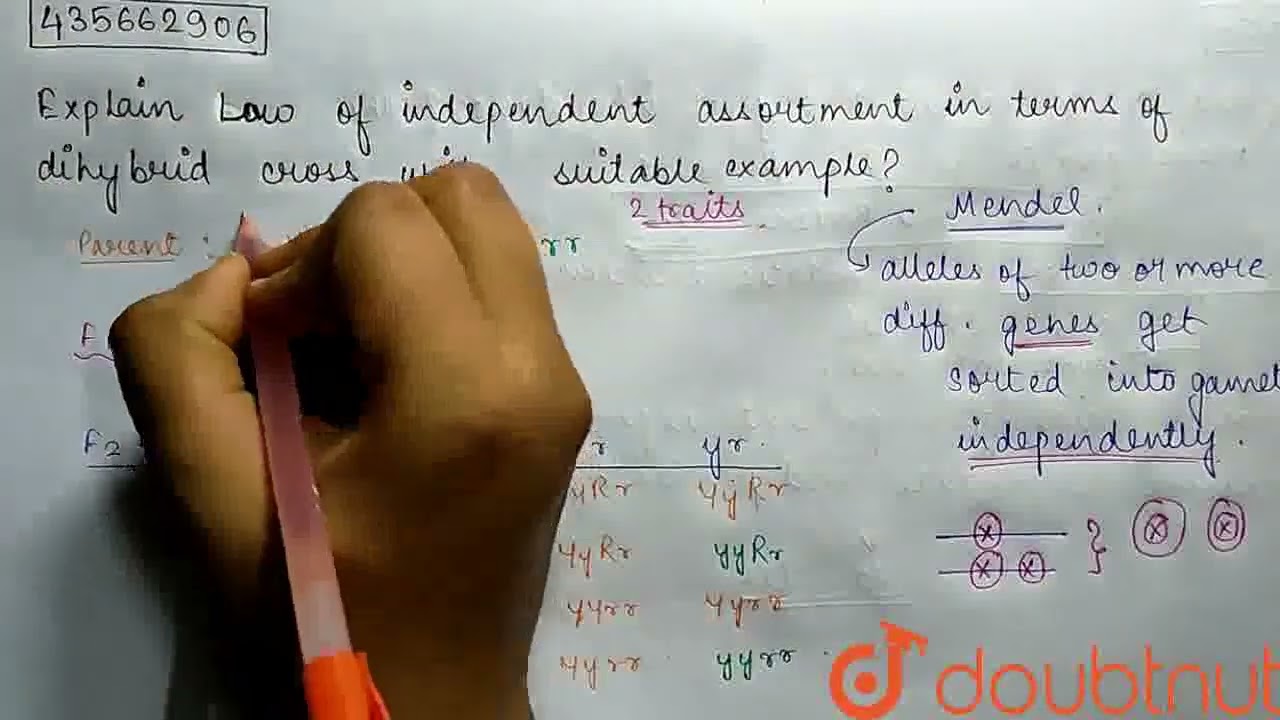 435662906
Explain Law of independent assortment in terms of
dihybrid cross suitable example?
2 traits
Mendel.
Parent : rr
alleles of two or more
diff. genes get
sorted into gamet
independently.
F
F2
r yr.
yRr YyRr
YyRr yyRr
Yyrr
yyrr
doubtnut